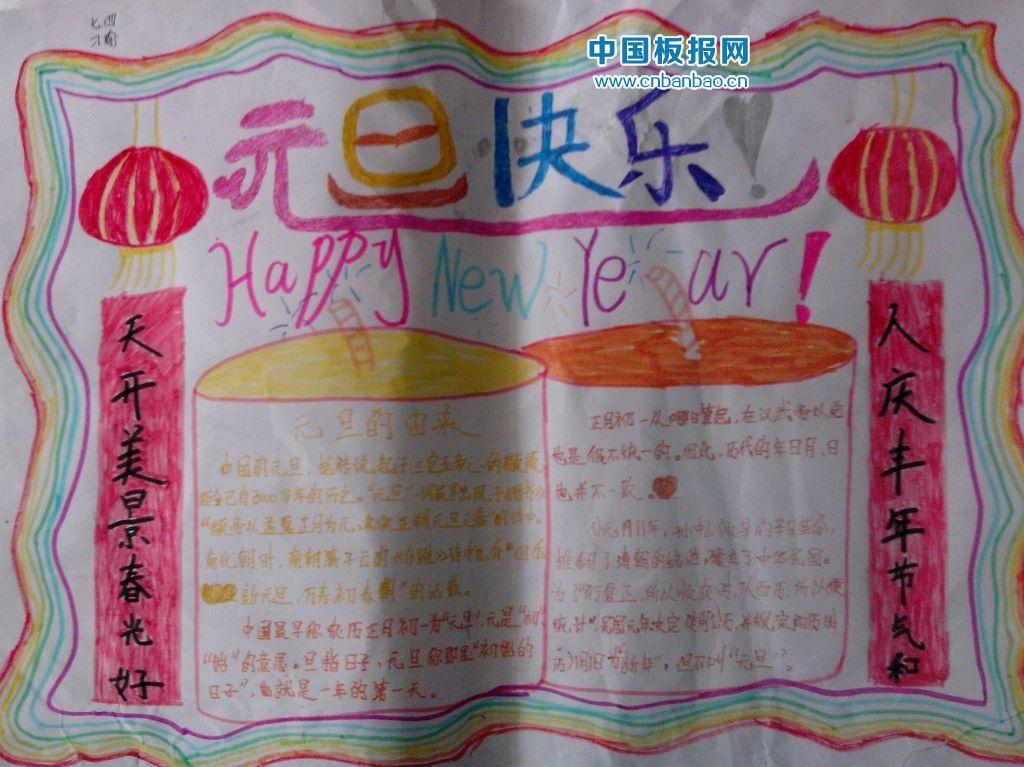 七.四
中国板报网
www.cnbanbao.cn
元旦快乐!
Happy New Year!
天开美景春光好
人庆丰年节气和
元旦的由来
中国的元旦,据传说起于三皇五帝之一的颛顼,
距今已有3000多年的历史。"元旦"一词最早出现于《晋书》:
"颛帝以孟夏正月为元,其实正朔元旦之春"的诗中。
南北朝时,南朝萧子云的《介雅》诗中也有"四季
新元旦,万寿初春朝"的记载。
中国最早称农历正月初一为"元旦",元是"初"
"始"的意思。旦指日子,元旦合称即是"初始的
日子",也就是一年的第一天。
正月初一从哪日算起,在汉武帝以前
也是很不统一的。因此,历代的年日月、日
也并不一致。
公元1911年,孙中山领导的辛亥革命
推翻了清朝的统治,建立了中华民国。
为了"行夏正,所以顺农时,从西历,所以便
统计",民国元年决定使用公历,并规定阳历
1月1日为"新年",但不叫"元旦"。